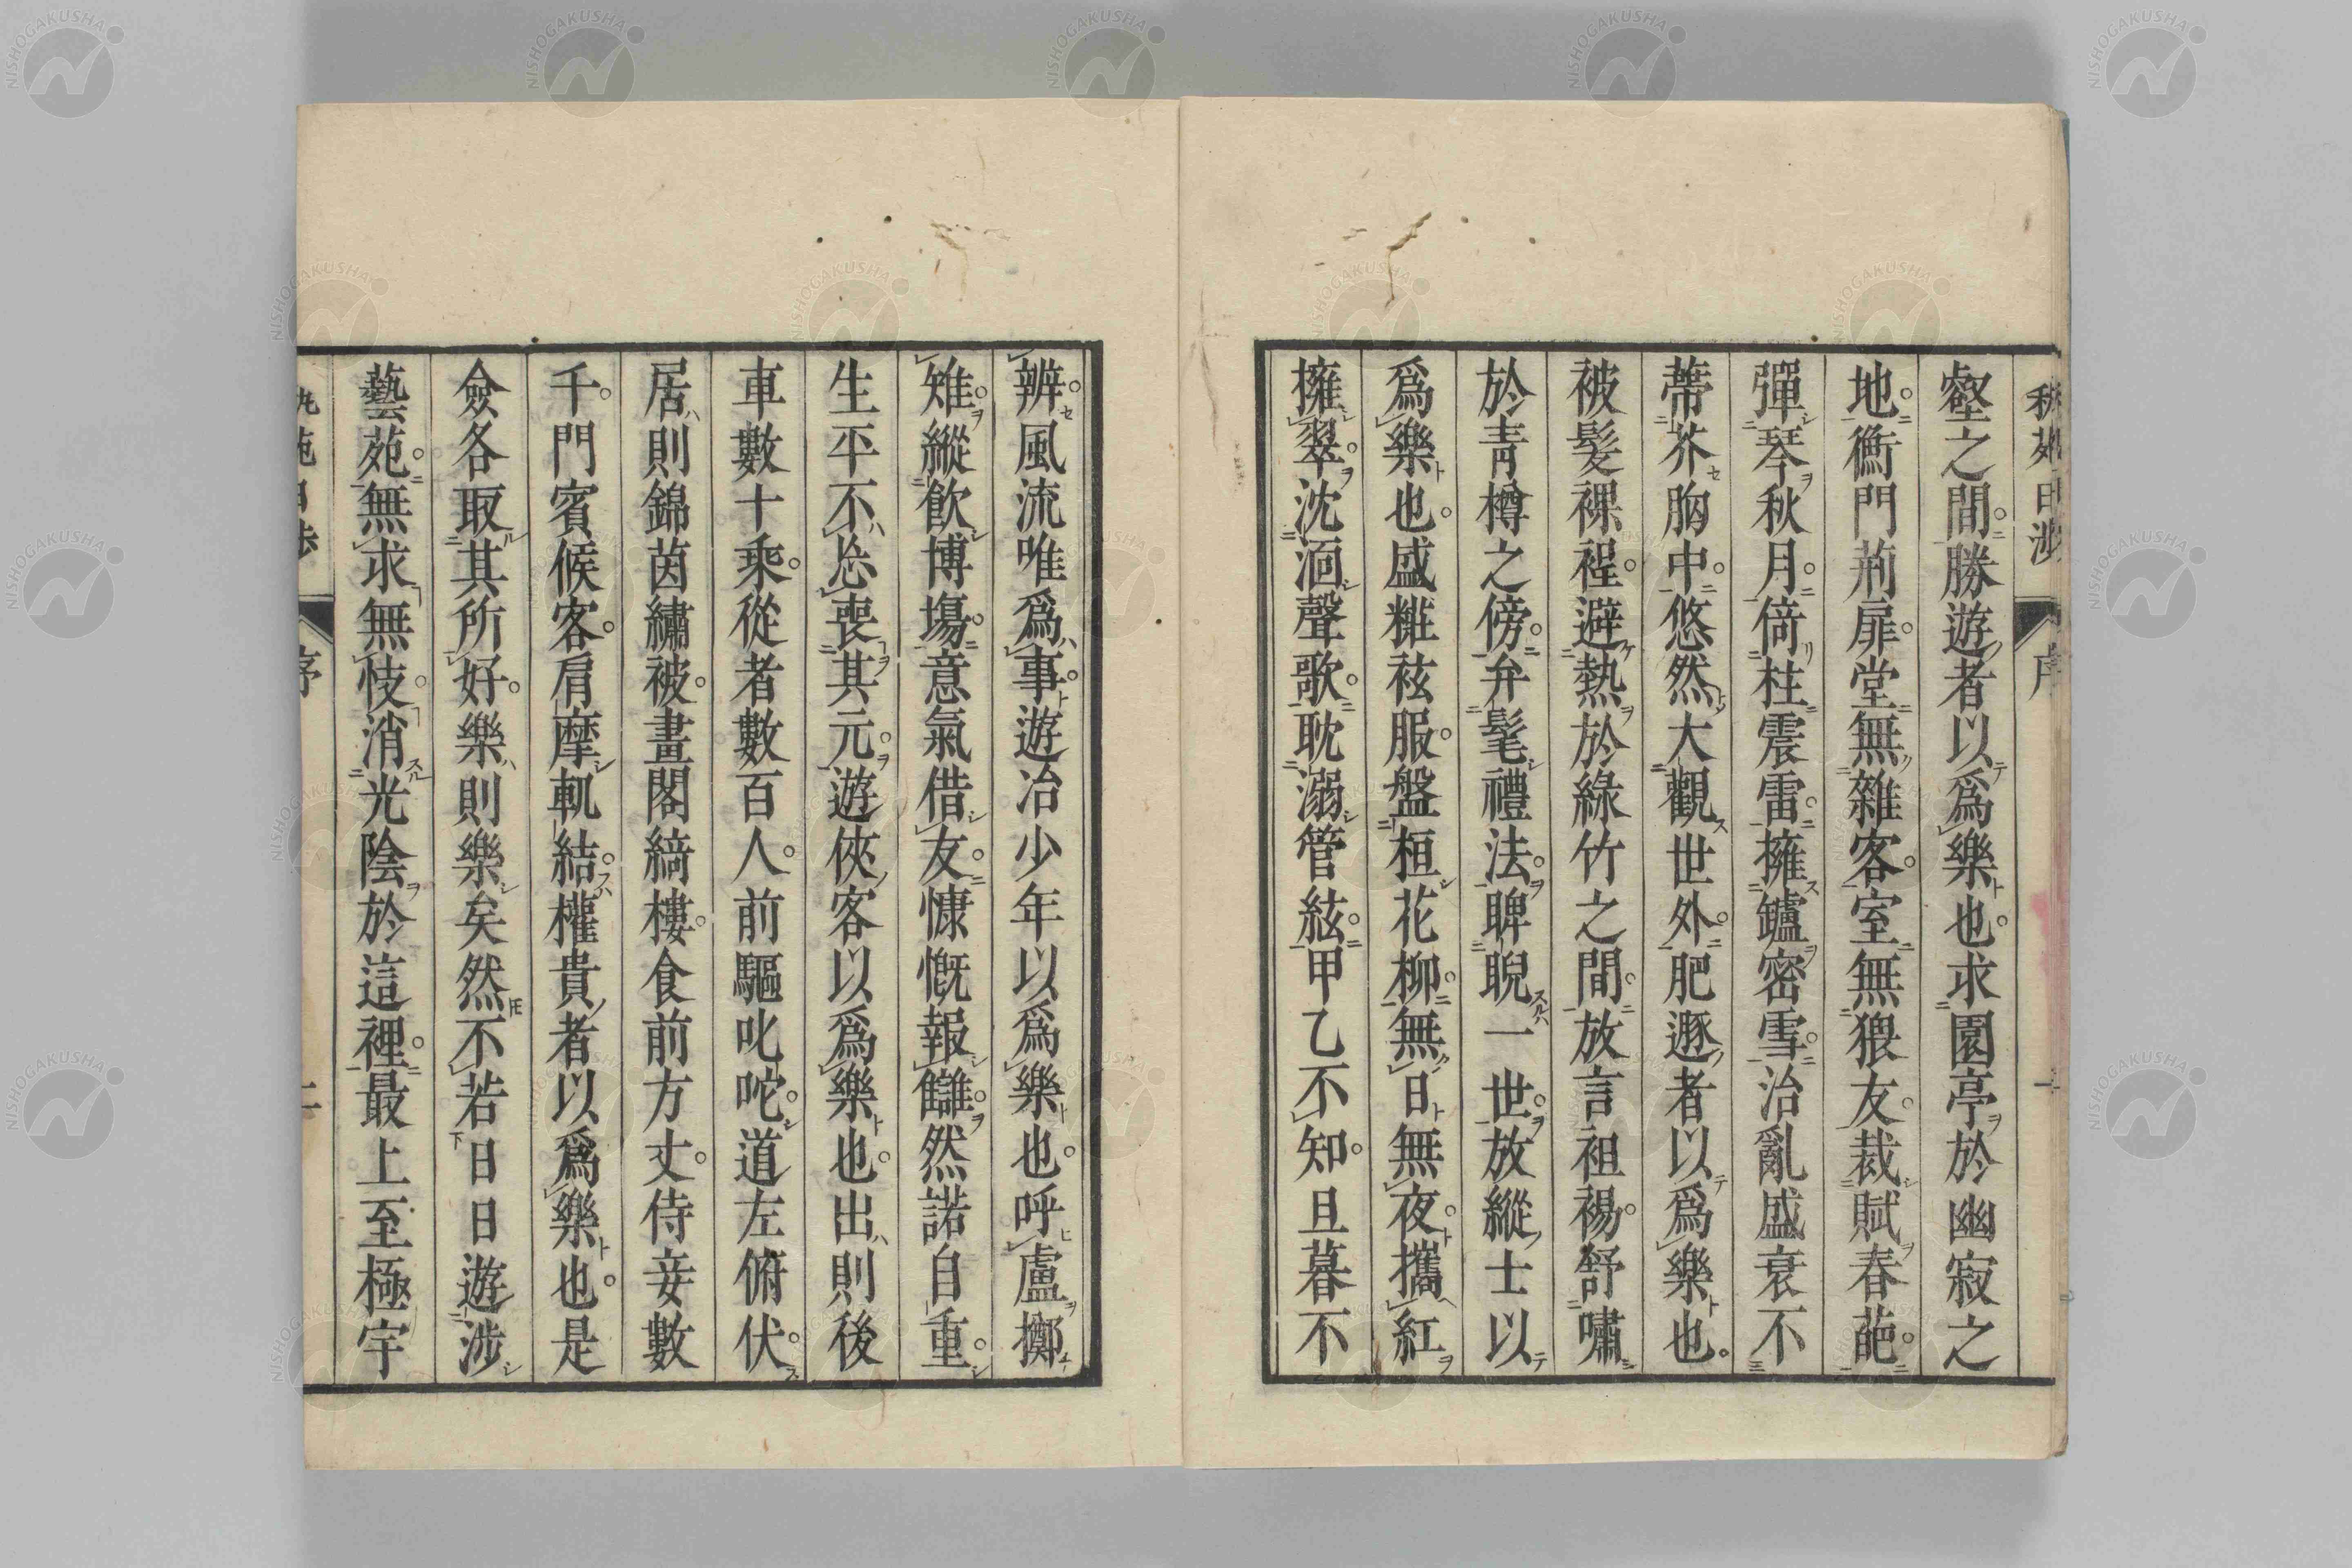 秇苑日渉 序 一
壑之間勝遊者以爲樂也求園亭於幽寂之
地衡門荊扉堂無雜客室無猥友裁賦春葩
彈琴秋月倚柱震雷擁鑪密雪治亂盛衰不
蔕芥胸中悠然大觀世外肥遯者以爲樂也
被髮裸裎避熱於綠竹之間放言袒裼舒嘯
於靑樽之傍弁髦禮法睥睨一世放縱士以
爲樂也盛糚袨服盤桓花柳無日無夜攜紅
擁翠沈湎聲歌耽溺管絃甲乙不知旦暮不
辨風流唯爲事遊冶少年以爲樂也呼盧擲
雉縱飮博塲意氣借友慷慨報讎然諾自重
生平不忘喪其元遊俠客以爲樂也出則後
車數十乘從者數百人前驅叱咜道左俯伏
居則錦茵繡被畫閣綺樓食前方丈侍妾數
千門賓候客肩摩軌結權貴者以爲樂也是
僉各取其所好樂則樂矣然不若日日遊涉
藝苑無求無忮消光陰於這裡最上至極宇
秇苑日渉 序 二
NISHOGAKUSHA